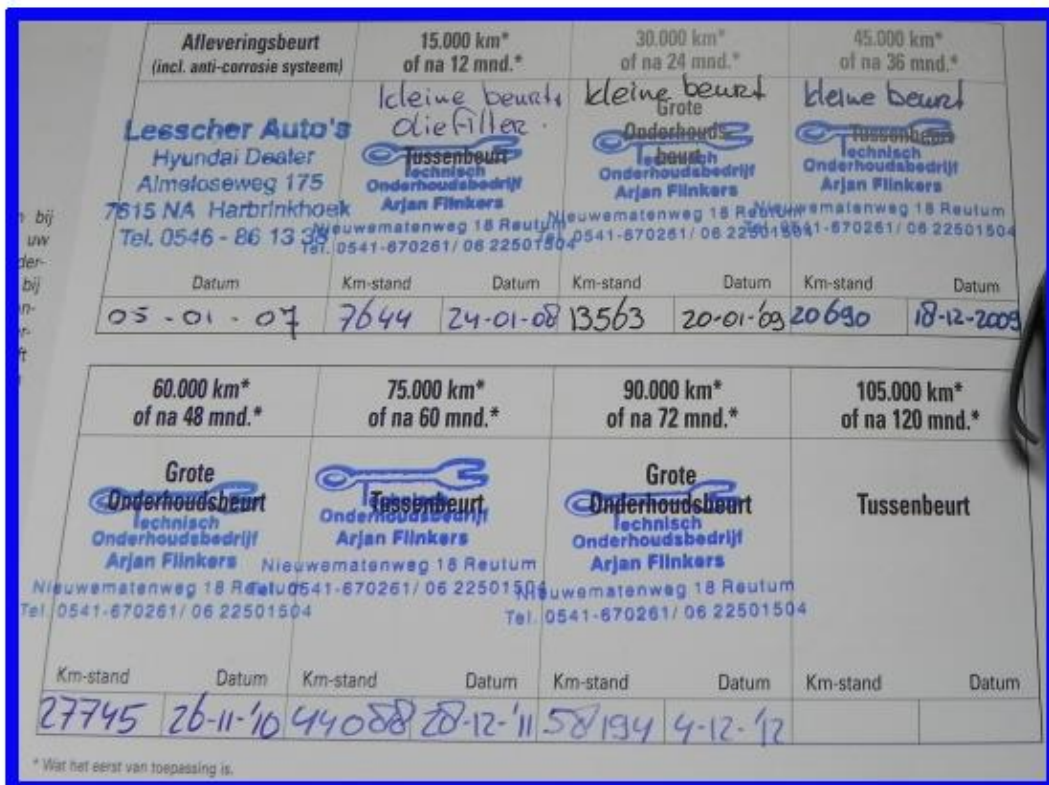 Afleveringsbeurt
(incl. anti-corrosie systeem)
15.000 km*
of na 12 mnd.*
30.000 km*
of na 24 mnd.*
45.000 km*
of na 36 mnd.*
Lesscher Auto's
Hyundai Dealer
Almeloseweg 175
7615 NA Harbrinkhoek
Tel. 0546 - 86 13 38
kleine beurt,
oliefilter.
Tussenbeurt
Technisch
Onderhoudsbedrijf
Arjan Flinkers
Nieuwematenweg 18 Reutum
Tel. 0541-670261/ 06 22501504
kleine beurt
Grote
Onderhouds-
beurt
Technisch
Onderhoudsbedrijf
Arjan Flinkers
Nieuwematenweg 18 Reutum
Tel. 0541-670261/ 06 22501504
kleine beurt
Tussenbeurt
Technisch
Onderhoudsbedrijf
Arjan Flinkers
Nieuwematenweg 18 Reutum
Tel. 0541-670261/ 06 22501504
Datum
Km-stand Datum
Km-stand Datum
Km-stand Datum
05-01-07
7644 24-01-08
13563 20-01-'09
20690 18-12-2009
bij
uw
der-
bij
n-
r-
ft
60.000 km*
of na 48 mnd.*
75.000 km*
of na 60 mnd.*
90.000 km*
of na 72 mnd.*
105.000 km*
of na 120 mnd.*
Grote
Onderhoudsbeurt
Technisch
Onderhoudsbedrijf
Arjan Flinkers
Nieuwematenweg 18 Reutum
Tel. 0541-670261/ 06 22501504
Tussenbeurt
Onderhoudsbedrijf
Arjan Flinkers
Nieuwematenweg 18 Reutum
Tel. 0541-670261/ 06 22501504
Grote
Onderhoudsbeurt
Technisch
Onderhoudsbedrijf
Arjan Flinkers
Nieuwematenweg 18 Reutum
Tel. 0541-670261/ 06 22501504
Tussenbeurt
Km-stand Datum
Km-stand Datum
Km-stand Datum
Km-stand Datum
27745 26-11-'10
44088 28-12-'11
58194 4-12-'12
* Wat het eerst van toepassing is.